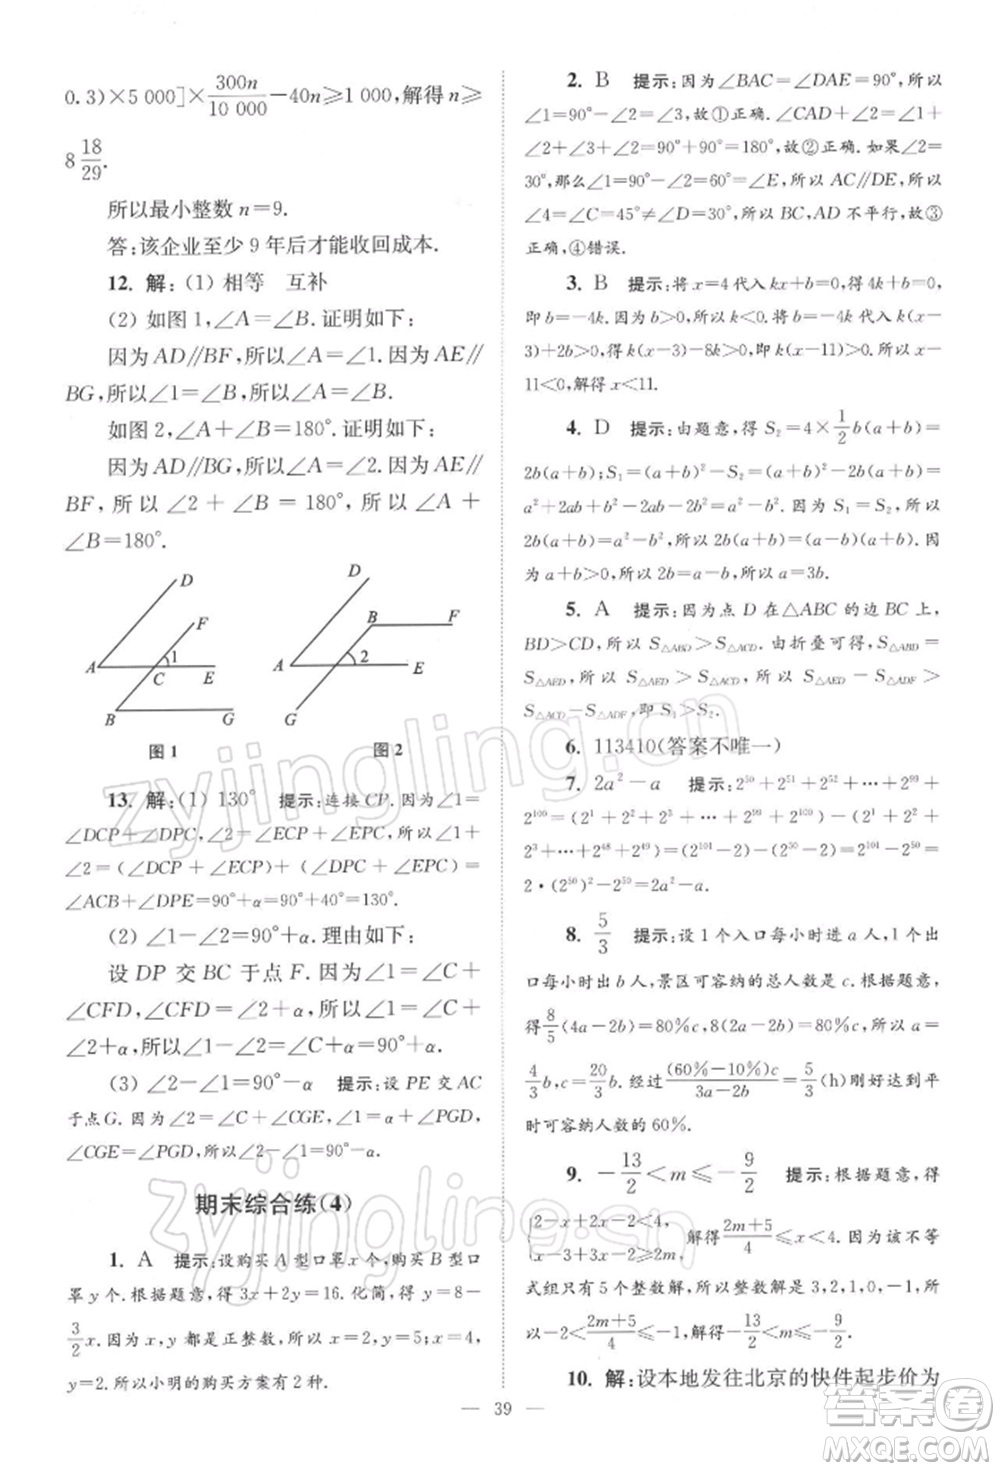 0.3)×5 000]×300n/10 000-40n≥1 000,解得 n≥
8 18/29.
所以最小整数 n=9.
答:该企业至少 9 年后才能收回成本.
12. 解:(1) 相等 互补
(2) 如图 1,∠A=∠B.证明如下:
因为 AD//BF,所以∠A=∠1.因为 AE//
BG,所以∠1=∠B,所以∠A=∠B.
如图 2,∠A+∠B=180°.证明如下:
因为 AD//BG,所以∠A=∠2.因为 AE//
BF,所以∠2+∠B=180°,所以∠A+
∠B=180°.
D
F
A
1
C
E
B
G
图 1
D
B
F
A
2
E
G
图 2
13. 解:(1) 130° 提示:连接 CP.因为∠1=
∠DCP+∠DPC,∠2=∠ECP+∠EPC,所以∠1+
∠2=(∠DCP+∠ECP)+(∠DPC+∠EPC)=
∠ACB+∠DPE=90°+α=90°+40°=130°.
(2) ∠1-∠2=90°+α.理由如下:
设 DP 交 BC 于点 F.因为∠1=∠C+
∠CFD,∠CFD=∠2+α,所以∠1=∠C+
∠2+α,所以∠1-∠2=∠C+α=90°+α.
(3) ∠2-∠1=90°-α 提示:设 PE 交 AC
于点 G.因为∠2=∠C+∠CGE,∠1=α+∠PGD,
∠CGE=∠PGD,所以∠2-∠1=90°-α.
期末综合练(4)
1. A 提示:设购买 A 型口罩 x 个,购买 B 型口
罩 y 个.根据题意,得 3x+2y=16.化简,得 y=8-
3/2x.因为 x,y 都是正整数,所以 x=2,y=5;x=4,
y=2.所以小明的购买方案有 2 种.
2. B 提示:因为∠BAC=∠DAE=90°,所以
∠1=90°-∠2=∠3,故①正确.∠CAD+∠2=∠1+
∠2+∠3+∠2=90°+90°=180°,故②正确.如果∠2=
30°,那么∠1=90°-∠2=60°=∠E,所以 AC//DE,所以
∠4=∠C=45°≠∠D=30°,所以 BC,AD 不平行,故③
正确,④错误.
3. B 提示:将 x=4 代入 kx+b=0,得 4k+b=0,
即 b=-4k.因为 b>0,所以 k<0.将 b=-4k 代入 k(x-
3)+2b>0,得 k(x-3)-8k>0,即 k(x-11)>0.所以 x-
11<0,解得 x<11.
4. D 提示:由题意,得 S₂=4×1/2b(a+b)=
2b(a+b);S₁=(a+b)²-S₂=(a+b)²-2b(a+b)=
a²+2ab+b²-2ab-2b²=a²-b².因为 S₁=S₂,所以
2b(a+b)=a²-b²,所以 2b(a+b)=(a-b)(a+b).因
为 a+b>0,所以 2b=a-b,所以 a=3b.
5. A 提示:因为点 D 在△ABC 的边 BC 上,
BD>CD,所以 S△ABD>S△ACD.由折叠可得,S△ABD=
S△AED,所以 S△AED>S△ACD,所以 S△AED-S△ADF>
S△ACD-S△ADF,即 S₁>S₂.
6. 113410(答案不唯一)
7. 2a²-a 提示:2⁵⁰+2⁵¹+2⁵²+⋯+2⁹⁹+
2¹⁰⁰=(2¹+2²+2³+⋯+2⁹⁹+2¹⁰⁰)-(2¹+2²+
2³+⋯+2⁴⁸+2⁴⁹)=(2¹⁰¹-2)-(2⁵⁰-2)=2¹⁰¹-2⁵⁰=
2·(2⁵⁰)²-2⁵⁰=2a²-a.
8. 5/3 提示:设 1 个入口每小时进 a 人,1 个出
口每小时出 b 人,景区可容纳的总人数为 c.根据题意,
得8/5(4a-2b)=80%c,8(2a-2b)=80%c,所以 a=
4/3b,c=20/3b.经过(60%-10%)c/3a-2b=5/3(h)刚好达到平
时可容纳人数的 60%.
9. -13/2<m≤-9/2 提示:根据题意,得
{2-x+2x<4,
3-x+2x≥2m, 解得2m+5/4≤x<4.因为该不等
式组只有 5 个整数解,所以整数解为 3,2,1,0,-1,所
以-2<2m+5/4≤-1,解得-13/2<m≤-9/2.
10. 解:设本地发往北京的快件起步价为
39
zyjingling.cn
zyjingling.cn
答案圈
MXQE.COM